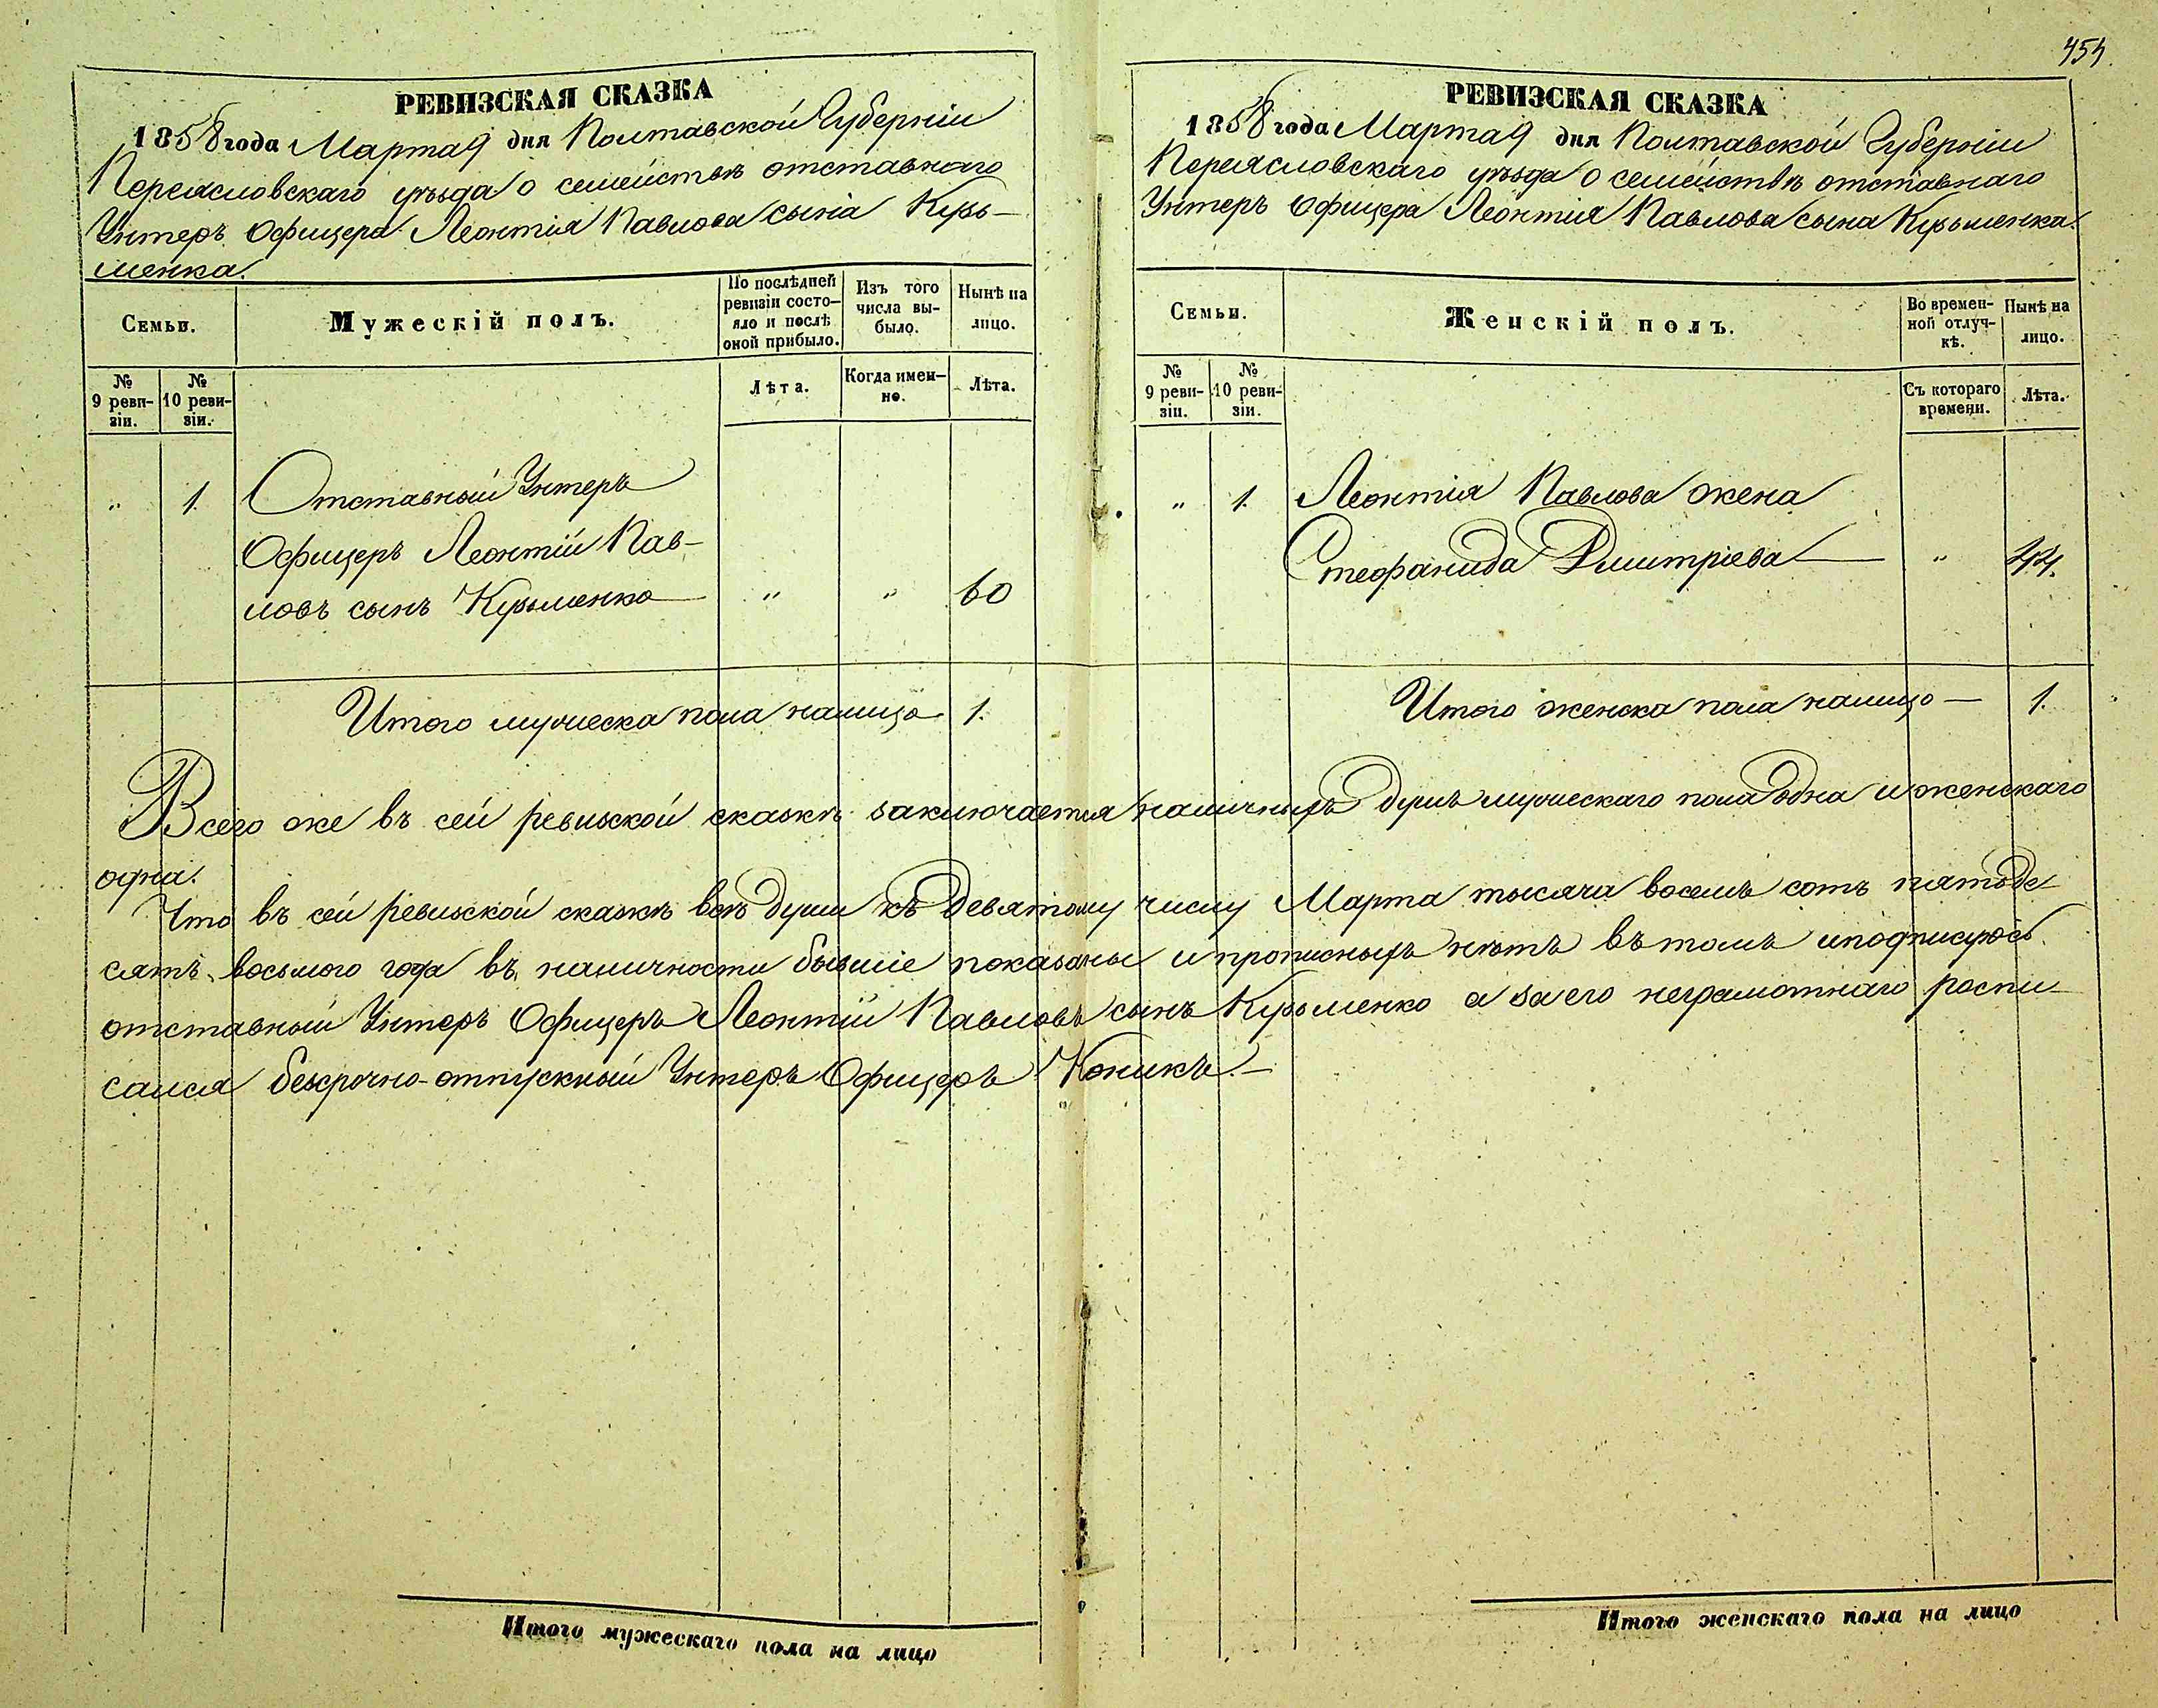 454.
РЕВИЗСКАЯ СКАЗКА
1858 года Марта 9 дня Полтавской Губерніи
Переясловскаго уѣзда о семействѣ отставнаго
Унтеръ Офицера Леонтія Павлова сына Кузь-
менка.
Семьи.
Мужескій полъ.
По послѣдней
ревизіи состо-
яло и послѣ
оной прибыло.
Изъ того
числа вы-
было.
Нынѣ на
лицо.
№
9 реви-
зіи.
№
10 реви-
зіи.
Лѣта.
Когда имен-
но.
Лѣта.
" 1. Отставный Унтеръ
Офицеръ Леонтій Пав-
ловъ сынъ Кузьменко " " 60
Итого мужеска пола налицо 1.
РЕВИЗСКАЯ СКАЗКА
1858 года Марта 9 дня Полтавской Губерніи
Переясловскаго уѣзда о семействѣ отставнаго
Унтеръ Офицера Леонтія Павлова сына Кузьменка.
Семьи.
Женскій полъ.
Во времен-
ной отлуч-
кѣ.
Нынѣ на
лицо.
№
9 реви-
зіи.
№
10 реви-
зіи.
Съ котораго
времени.
Лѣта.
" 1. Леонтія Павлова жена
Стефанида Дмитріева — " 44.
Итого женска пола налицо — 1.
Всего же въ сей ревизской сказкѣ заключается наличныхъ душъ мужескаго пола одна и женскаго
одна.
Что въ сей ревизской сказкѣ всѣ души къ девятому числу Марта тысяча восемь сотъ пятьде-
сятъ восьмого года въ наличности бывшіе показаны и прописныхъ нѣтъ въ томъ и подписуюсь
отставный Унтеръ Офицеръ Леонтій Павловъ сынъ Кузьменко а за его неграмотнаго роспи-
сался безсрочно-отпускный Унтеръ Офицеръ Коникъ. —
Итого мужескаго пола на лицо
Итого женскаго пола на лицо